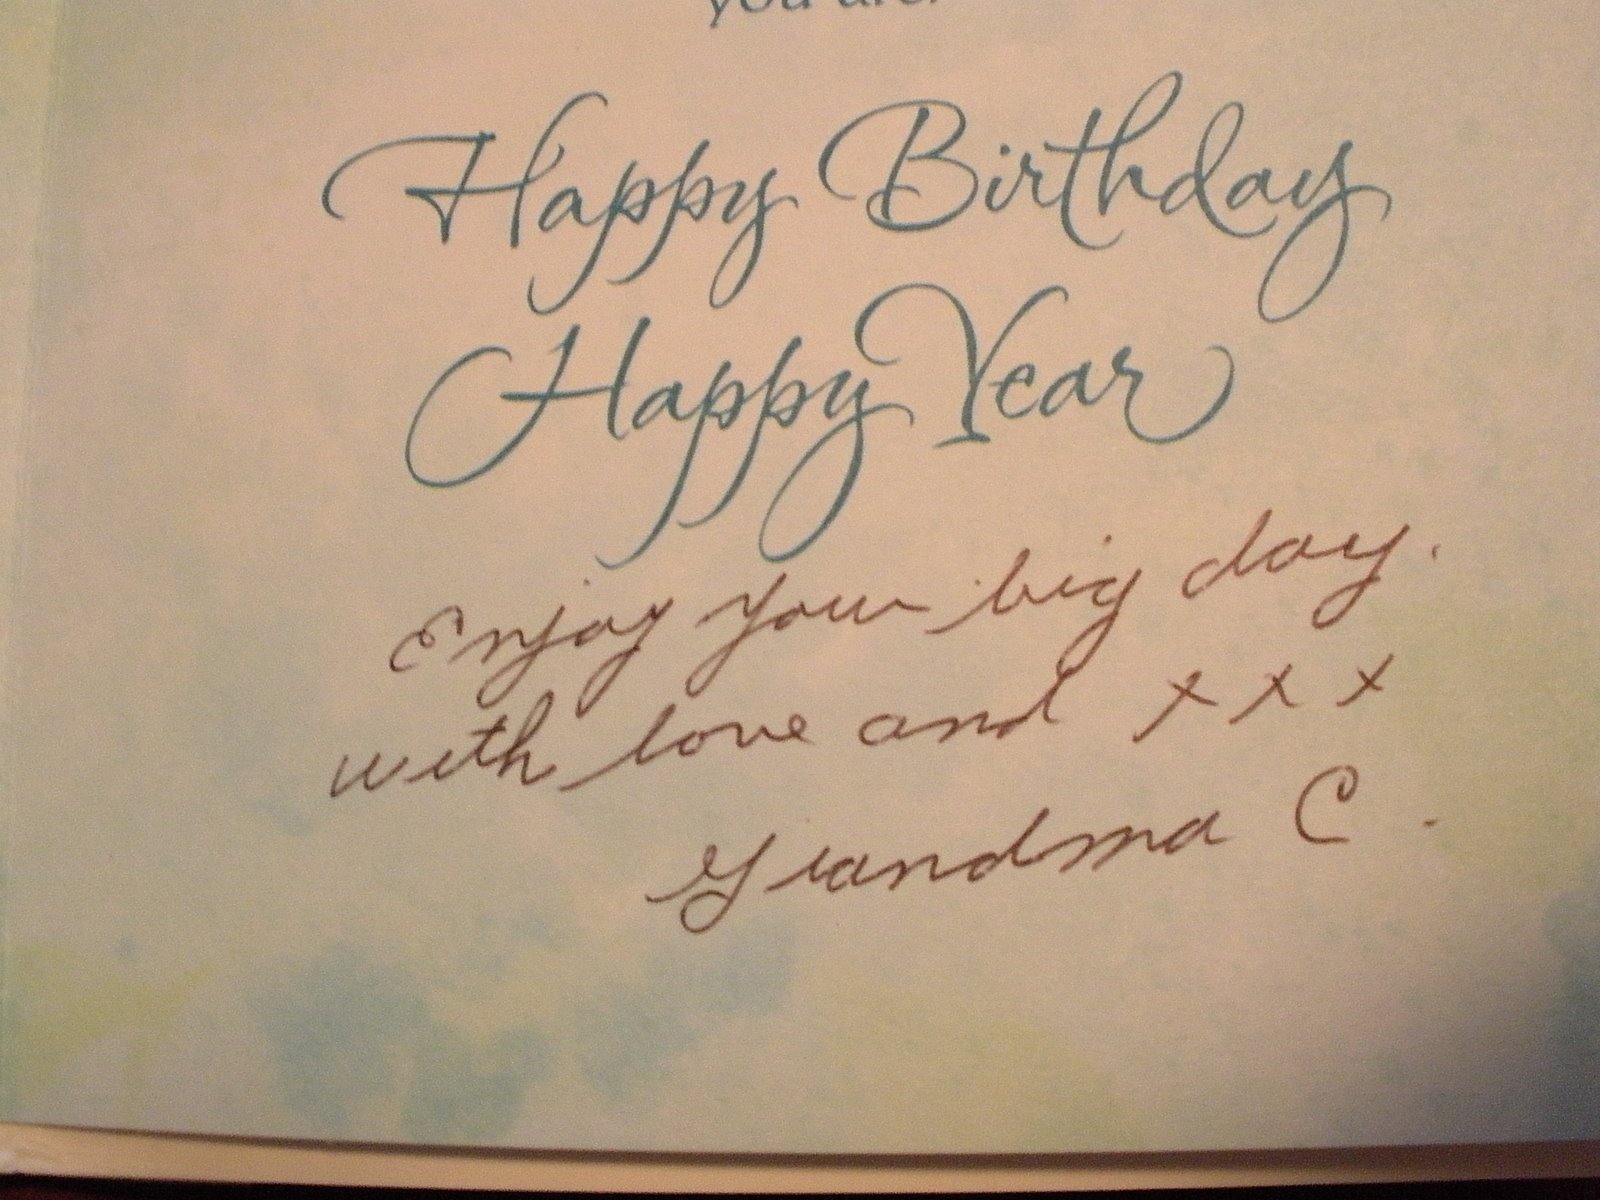 you are.
Happy Birthday
Happy Year
Enjoy your big day.
with love and x x x
Grandma C.